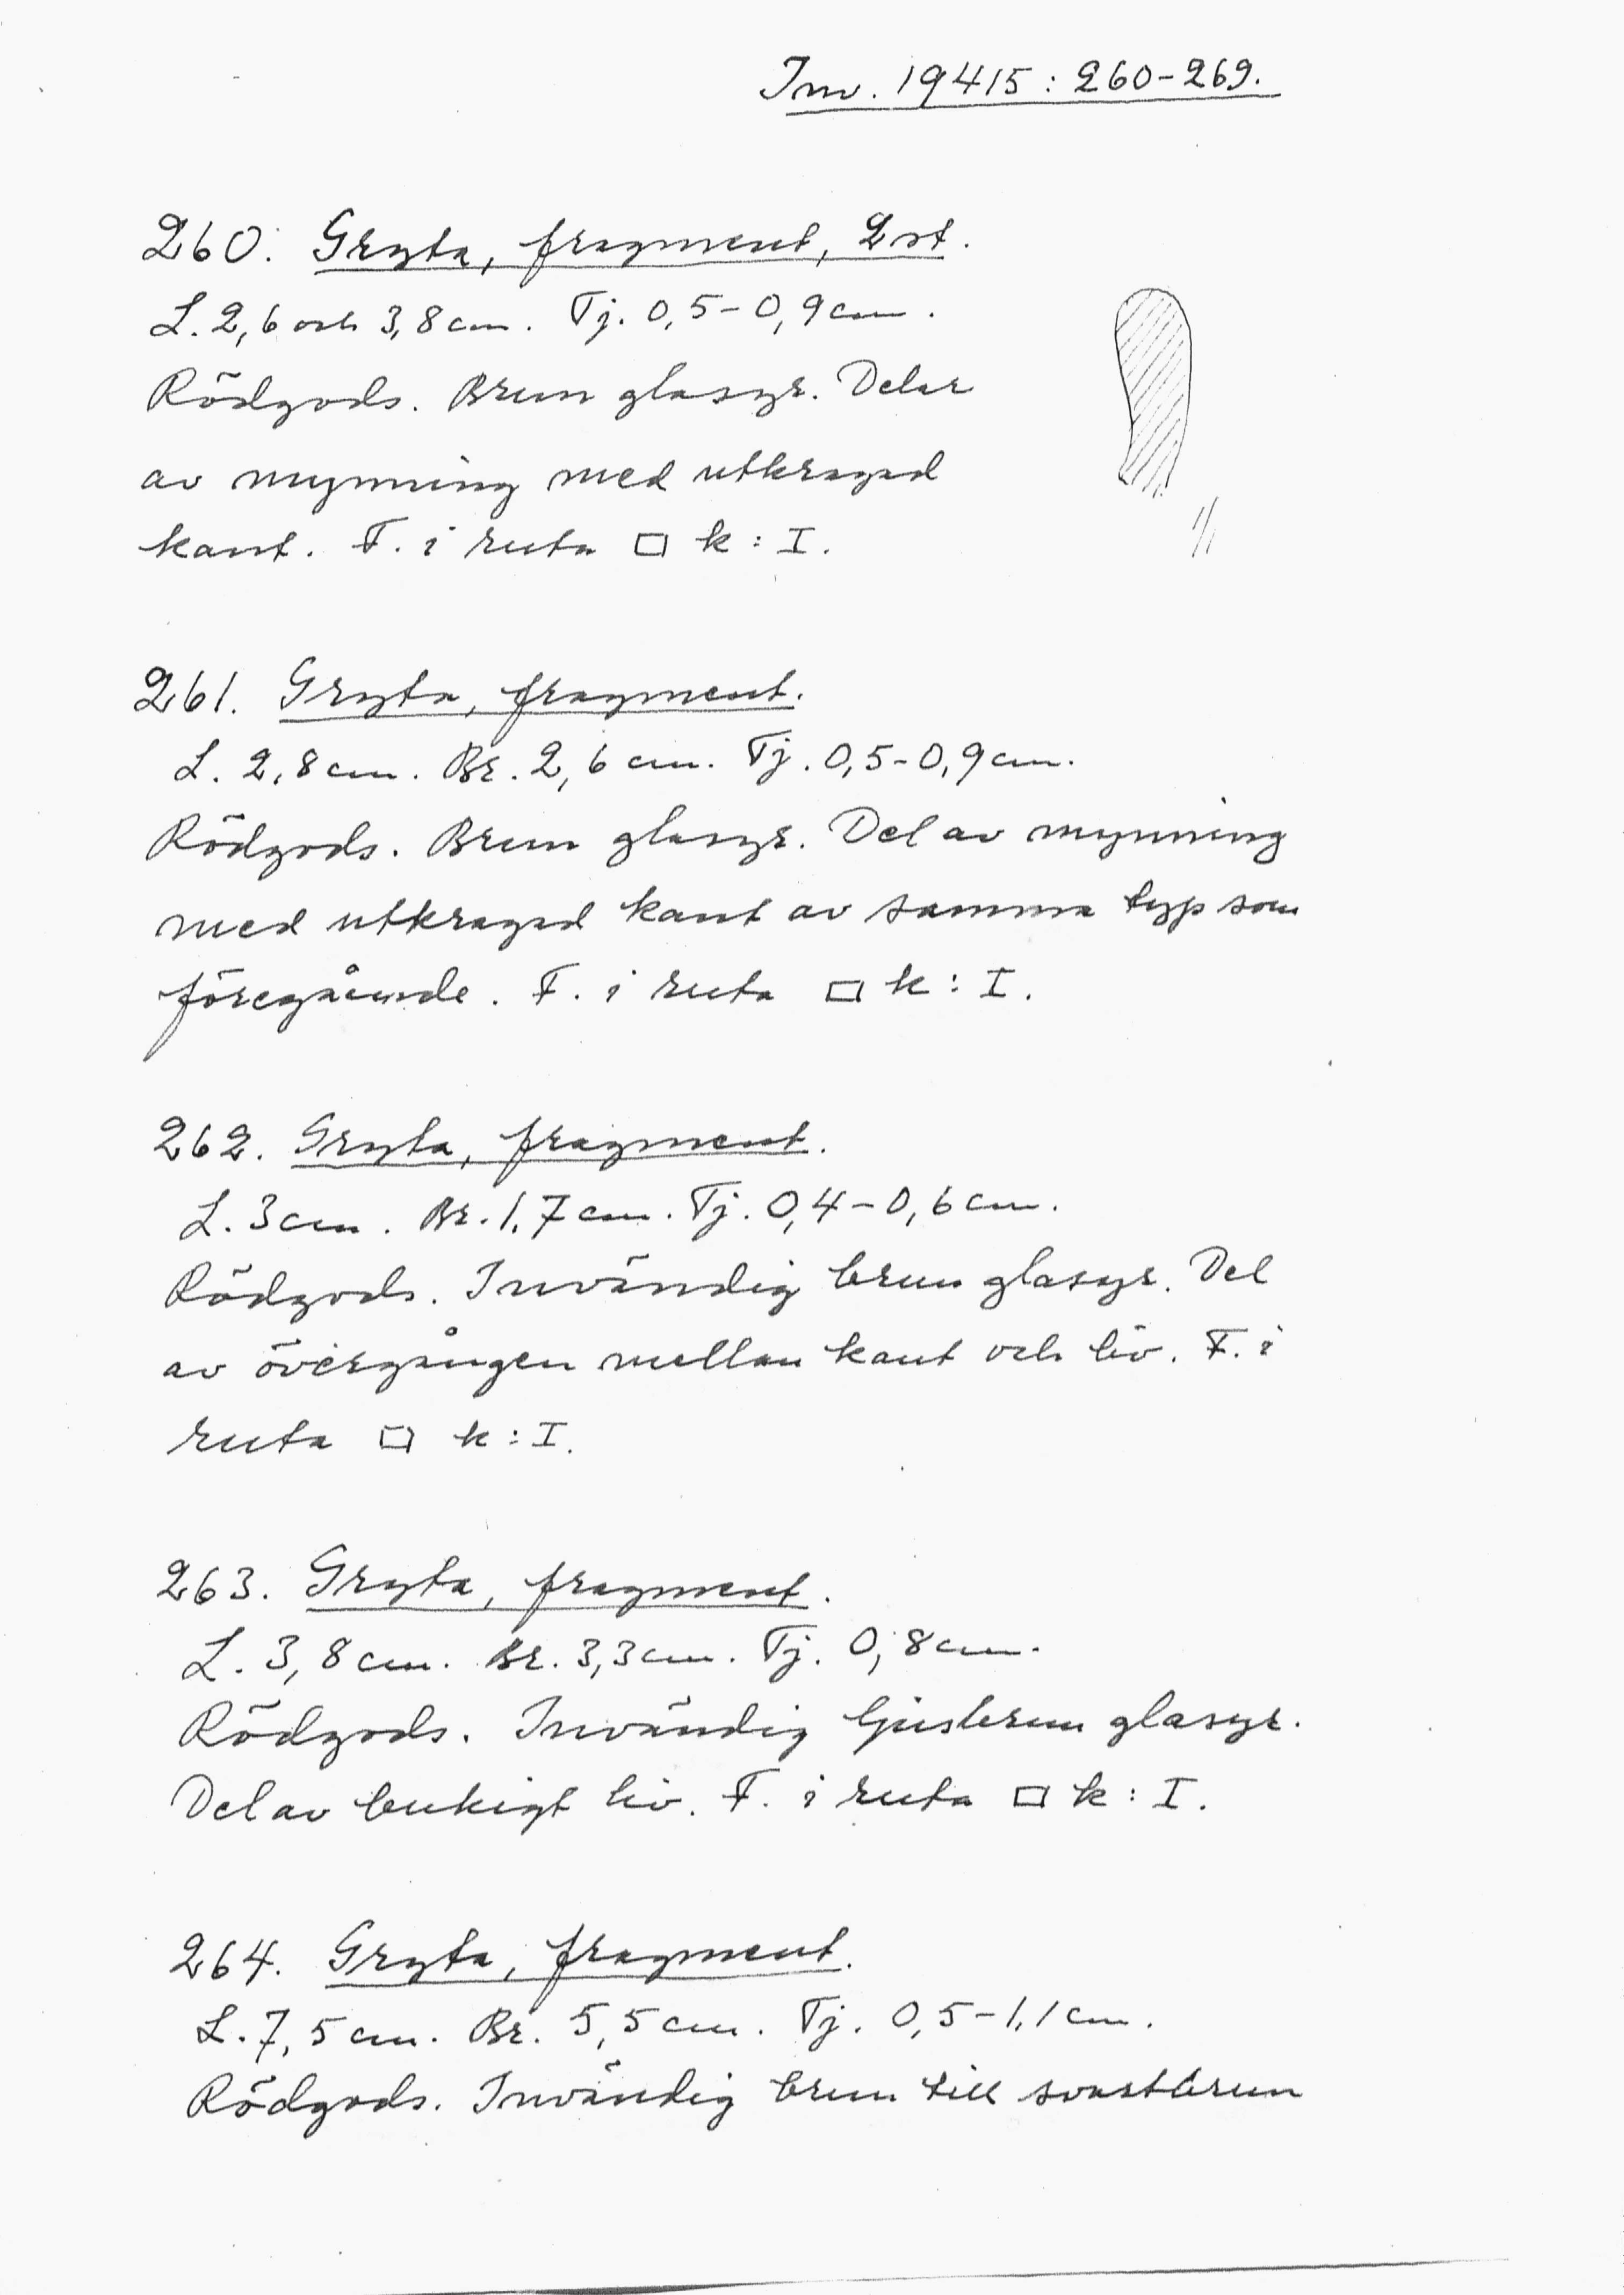 Inv. 19415:260-269.
260. Gryta, fragment, 2 st.
L. 2,6 och 3,8 cm. Tj. 0,5-0,9 cm.
Rödgods. Brun glasyr. Delar
av mynning med utkragad
kant. F. i ruta □ k:I.
1/1
261. Gryta, fragment.
L. 2,8 cm. Br. 2,6 cm. Tj. 0,5-0,9 cm.
Rödgods. Brun glasyr. Del av mynning
med utkragad kant av samma typ som
föregående. F. i ruta □ k:I.
262. Gryta, fragment.
L. 3 cm. Br. 1,7 cm. Tj. 0,4-0,6 cm.
Rödgods. Invändig brun glasyr. Del
av övergången mellan kant och liv. F. i
ruta □ k:I.
263. Gryta, fragment.
L. 3,8 cm. Br. 3,3 cm. Tj. 0,8 cm.
Rödgods. Invändig ljusbrun glasyr.
Del av bukigt liv. F. i ruta □ k:I.
264. Gryta, fragment.
L. 7,5 cm. Br. 5,5 cm. Tj. 0,5-1,1 cm.
Rödgods. Invändig brun till svartbrun